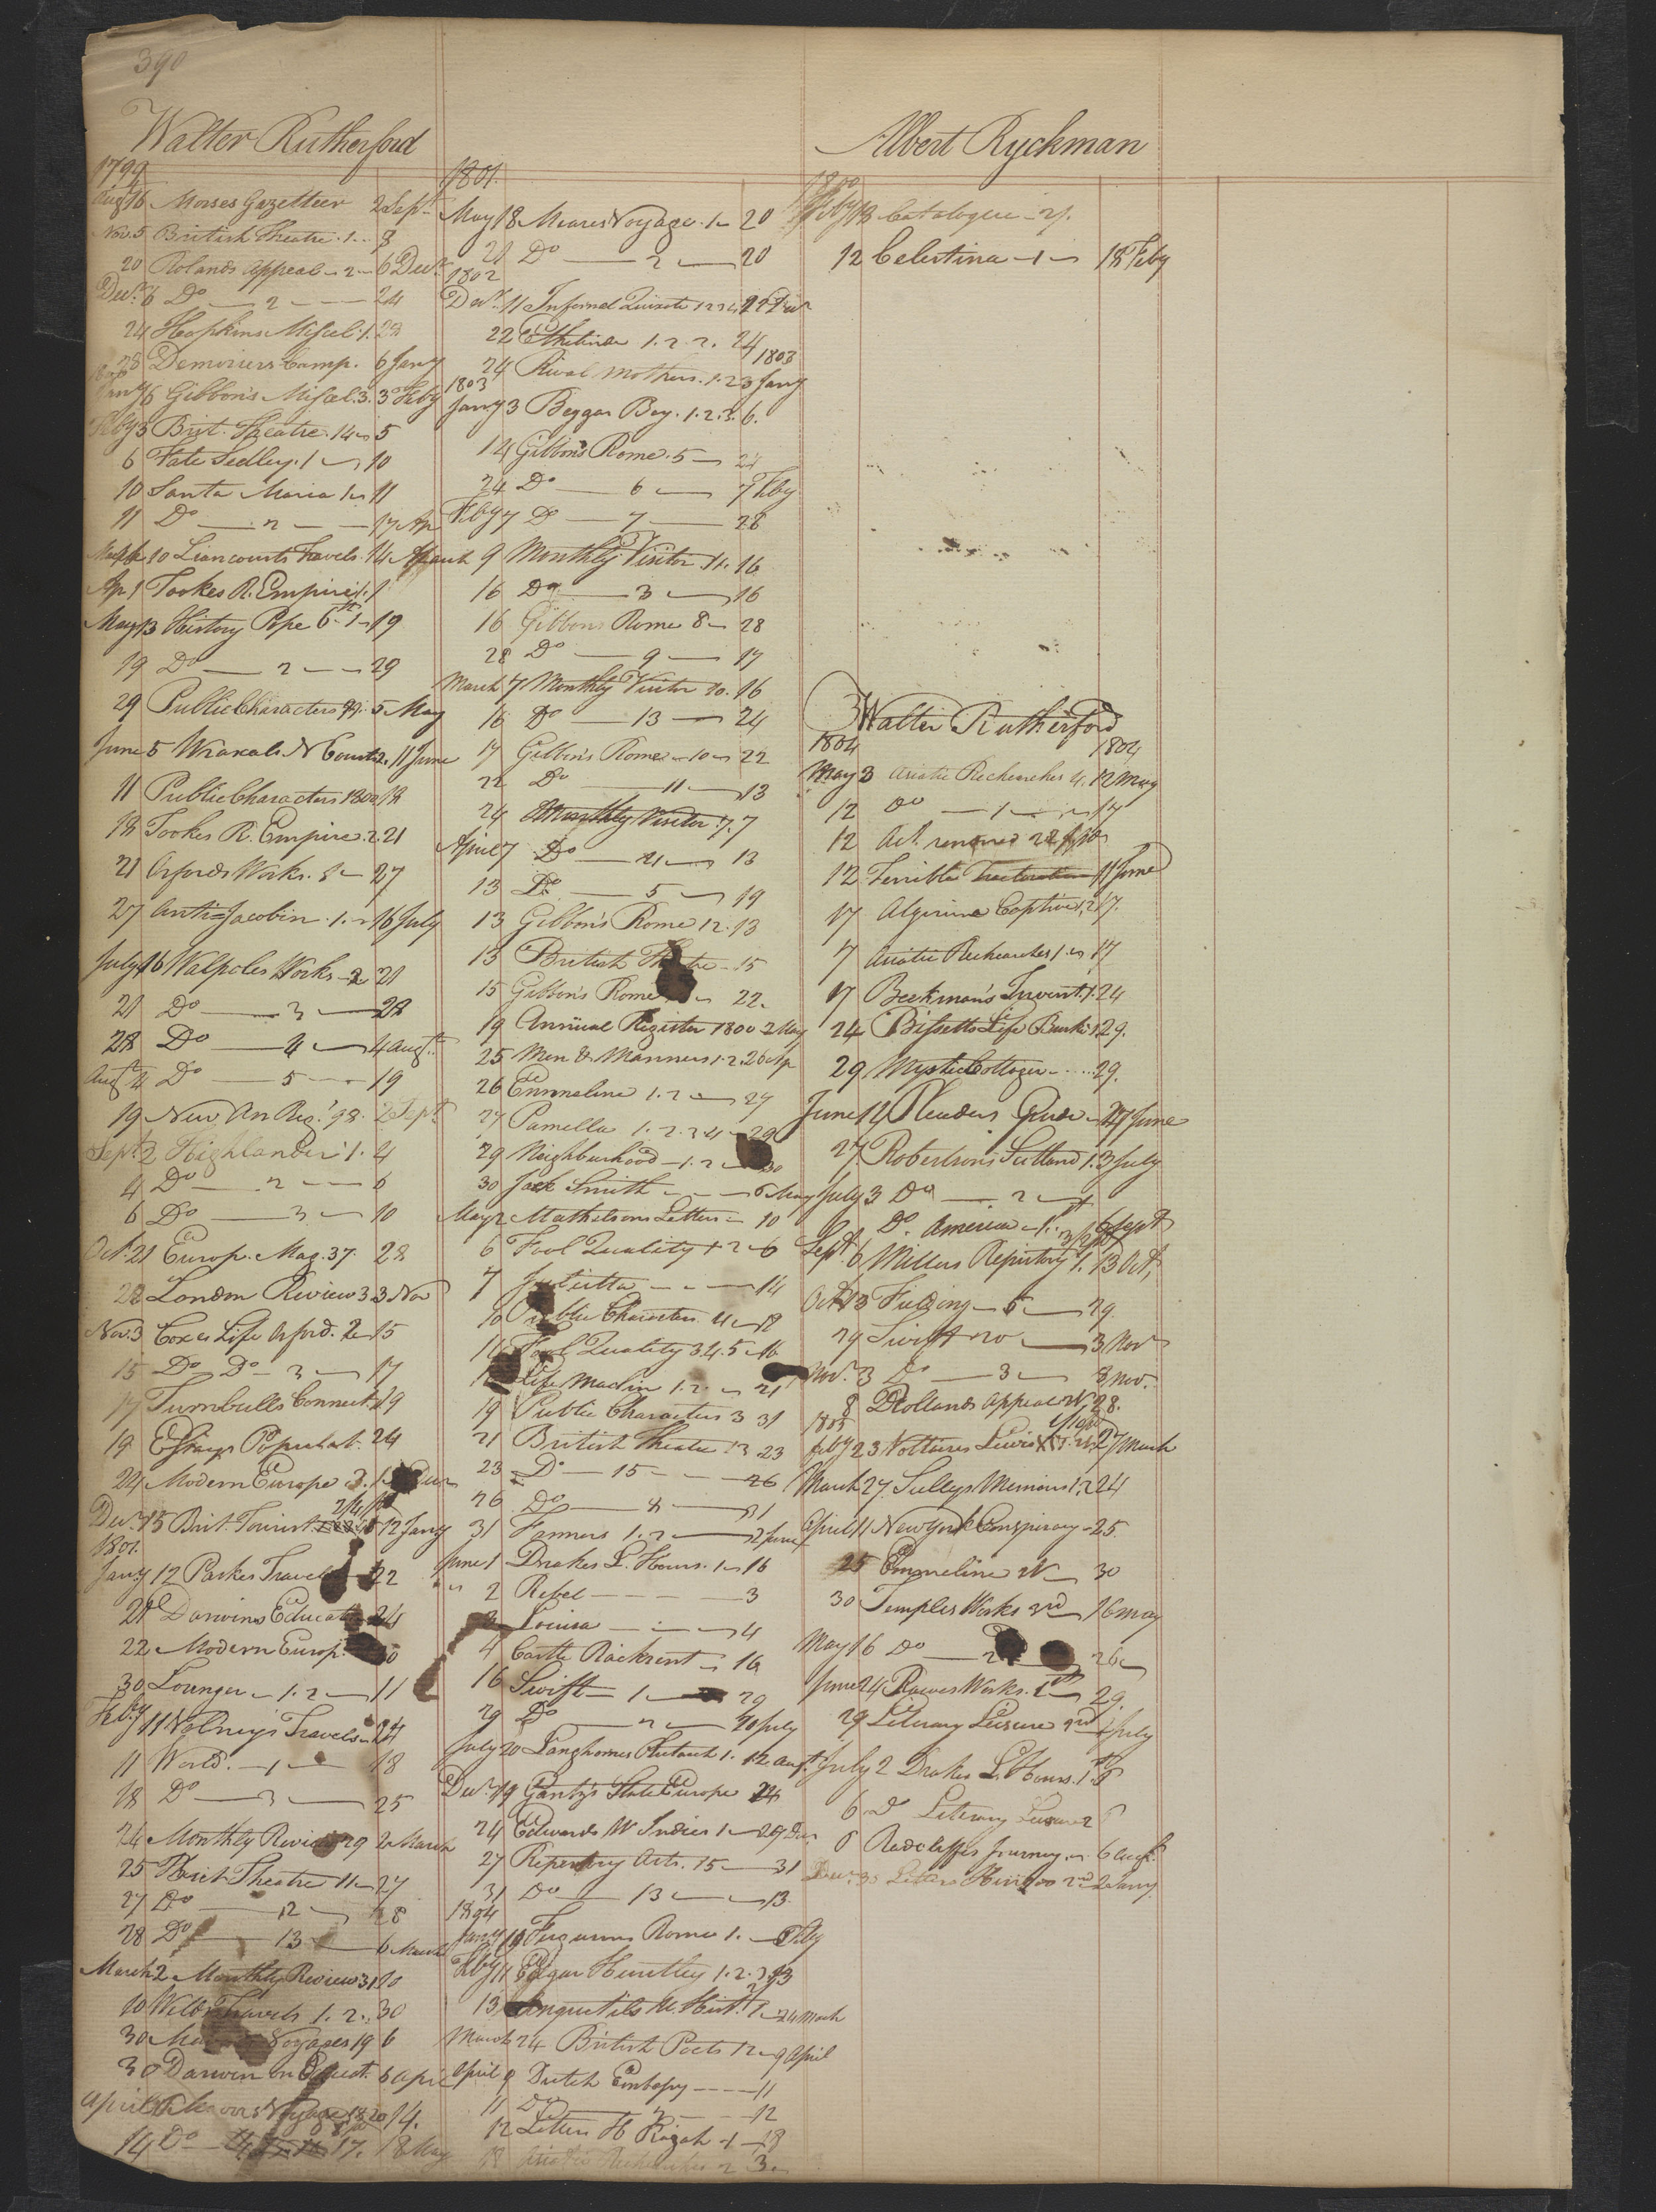 390
Walter Rutherford
1799
Augt 16 Morses Gazetteer 2 Sept
Nov. 5 British Theatre . 1 . 8
20 Rolands Appeal - 2 - 6 Decr
Decr 6 Do — 2 — 24
24 Hopkins Miscel. 1. 28
28 Demouriers Camp. 6 Jany
1800
Jany 6 Gibbon's Miscel. 3. 3 Feby
Feby 3 Brit. Theatre. 14 5
6 Fate Sedley. 1 — 10
10 Santa Maria 1 11
11 Do — 2 — 17
March 10 Liancourts Travels. 1
Ap 1 Tookes R. Empire 1. 1
May 13 History Pope 6th 1 - 19
19 Do — 2 — 29
29 Public Characters 99. 5
June 5 Wraxals N Courts 2. 11 June
11 Public Characters 1800 18
18 Tookes R. Empire . 2. 21
21 Orfords Works. 27
27 Anti=Jacobin . 1. 16 July
July 16 Walpoles Works - 2 21
21 Do — 3 — 28
28 Do — 4 — 4 Augt
Augt 4 Do — 5 — 19
19 New An Reg. 98. 2 Sept
Sept 2 Highlander 1. 4
4 Do — 2 — 6
6 Do — 3 — 10
Oct. 21 Europ. Mag. 37. 28
28 London Review 3 3 Nov
Nov. 3 Coxes Life Orford. 2 15
15 Do Do 3 — 17
17 Turnbulls Connect. 19
19 Essays Populat. 24
24 Modern Europe
Decr 15 Brit. Tourist 12 Jany
1801.
Jany 12 Parkes Travels 22
Darwins Educat 24
22 Modern Europ.
30 Lounger - 1. 2 — 11
Feby 11 Volney's Travels 24
11 World. — 1 — 18
18 Do — 3 — 25
24 Monthly Review 29 2 March
25 Brit Theatre 11 — 27
27 Do — 12 — 28
28 Do — 13 — 6 March
March 2 Monthly Review 31 10
10 Travels 1. 2. 30
30 Voyages 19 6
30 Darwin on Educt. 6 April
14 Do 17. 18 May
1801.
May 18 Meares Voyage . 1 20
20 Do — 2 — 20
1802
Decr 11 Infernal Quixote 1 2 3 4
22 Ethelinde 1. 2. 24
1803
24 Rival Mothers. 1. 2 3 Jany
1803
Jany 3 Beggar Boy. 1. 2. 3. 6.
14 Gibbons Rome. 5 — 24
24 Do — 6 — 7 Feby
Feby 7 Do — 7 — 28
9 Monthly Visitor 16
16 Do — 3 — 16
16 Gibbons Rome 8 — 28
28 Do — 9 — 17
March 7 Monthly Visitor 10. 16
16 Do — 13 — 24
17 Gibbon's Rome 10 22
22 Do — 11 — 13
24 Monthly Visitor 7. 7
April 7 Do — 21 — 13
13 Do — 5 — 19
13 Gibbon's Rome 12. 13
13 British Theatre - 15
15 Gibbon's Rome 22.
19 Annual Register 1800 2 May
25 Men & Manners 1. 2. 26 Ap
26 Emmeline 1. 2 — 27
27 Pamella 1. 2. 3 4 — 29
29 Neighbourhood - 1. 2 — 30
30 Jack Smith — — 6 May
May 2 Mathesons Letters — 10
6 Fool Quality 1 2 — 6
7 Julietta — 14
10 Public Characters
Fool Quality 3. 4. 5 16
Life Maclin 1. 2. 21
19 Public Characters 3 31
21 British Theatre 13 23
23 Do — 15 — 26
26 Do — 8 — 31
31 Farmers 1. 2 — 2 June
June 1 Drakes L. Hours. 1 16
2 Rebel — 3
Louisa — 4
4 Castle Rackrent — 16
16 Swift — 1 — 29
29 Do — 2 — 20 July
July 20 Langhornes Plutarch 1. 12 Augt
Decr 19 Gentz's State Europe 24
24 Edwards W. Indies 1 — 27 Decr
27 Repertory Arts. 15 — 31
31 Do — 13 — 13.
1804
Jany Fergusons Rome 1. — Feby
Feby 11 Edgar Huntley 1. 2. 3 13
13 Anquetils U. Hist. 1 24 March
March 24 British Poets 12 9 April
April 9 Dutch Embassy — 11
11 Do — 2 — 12
12 Letters H Rajah - 1 18
18 Asiatic Recherches 2 3.
Albert Ryckman
1800
Feby 13 Catalogue - 2/.
12 Celestina - 1 — 18 Feby
Walter Rutherford
1804
1804
May 3 Asiatic Recherches 4. 12 May
12 Do — 1 — 17
12 Act. renewed
12 Terrible Tractoration 11 June
17 Algerine Captive 1, 2 17.
7 Asiatic Recherches 1 17
17 Beckman's Invent. 1. 24
24 Bissetts Life Burke 1 29.
29 Mystic Cottager — 29.
June 12 Pleaders Guide — 27 June
27. Robertson's Scotland 1. 3 July
July 3 Do — 2 —
Do. America 1. 6 Sept
Sept 6 Millers Repertory 1. 13 Oct,
Oct 13 Fielding — 5 — 29.
29 Swift — 3 Nov
Nov. 3 Do — 3 — 8 Nov.
8 Rollands Appeal 28.
1805
Feby 23 Voltaires Lewis 27 March
March 27 Sullys Memoirs 1. 2 24
April 11 New York Conspiracy - 25.
25 Emmeline 30
30 Temples Works 3rd — 16 May
May 16 Do 26
June 24 Rowes Works. 29.
29 Literary Leisure July
July 2 Drakes L. Hours. 1
6 Do Literary Leisure 2
Radcliffes Journey 6 Augt
Decr 30 Letters Hindoo 2d 2 Jany